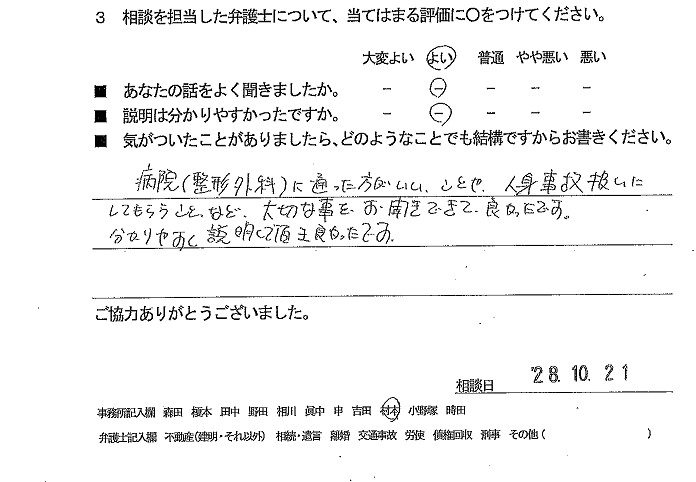 3 相談を担当した弁護士について、当てはまる評価に〇をつけてください。
大変よい よい 普通 やや悪い 悪い
■ あなたの話をよく聞きましたか。 － － － － －
■ 説明は分かりやすかったですか。 － － － － －
■ 気がついたことがありましたら、どのようなことでも結構ですからお書きください。
病院(整形外科)に通った方がいい、ことや、人身事故扱いに
してもらうこと、など、大切な事を、お聞きできて、良かったです。
分かりやすく説明して頂き良かったです。
ご協力ありがとうございました。
相談日 '28.10.21
事務所記入欄 森田 榎本 田中 野田 相川 眞中 申 吉田 村本 小野塚 時田
弁護士記入欄 不動産(建明・それ以外) 相続・遺言 離婚 交通事故 労使 債権回収 刑事 その他( )